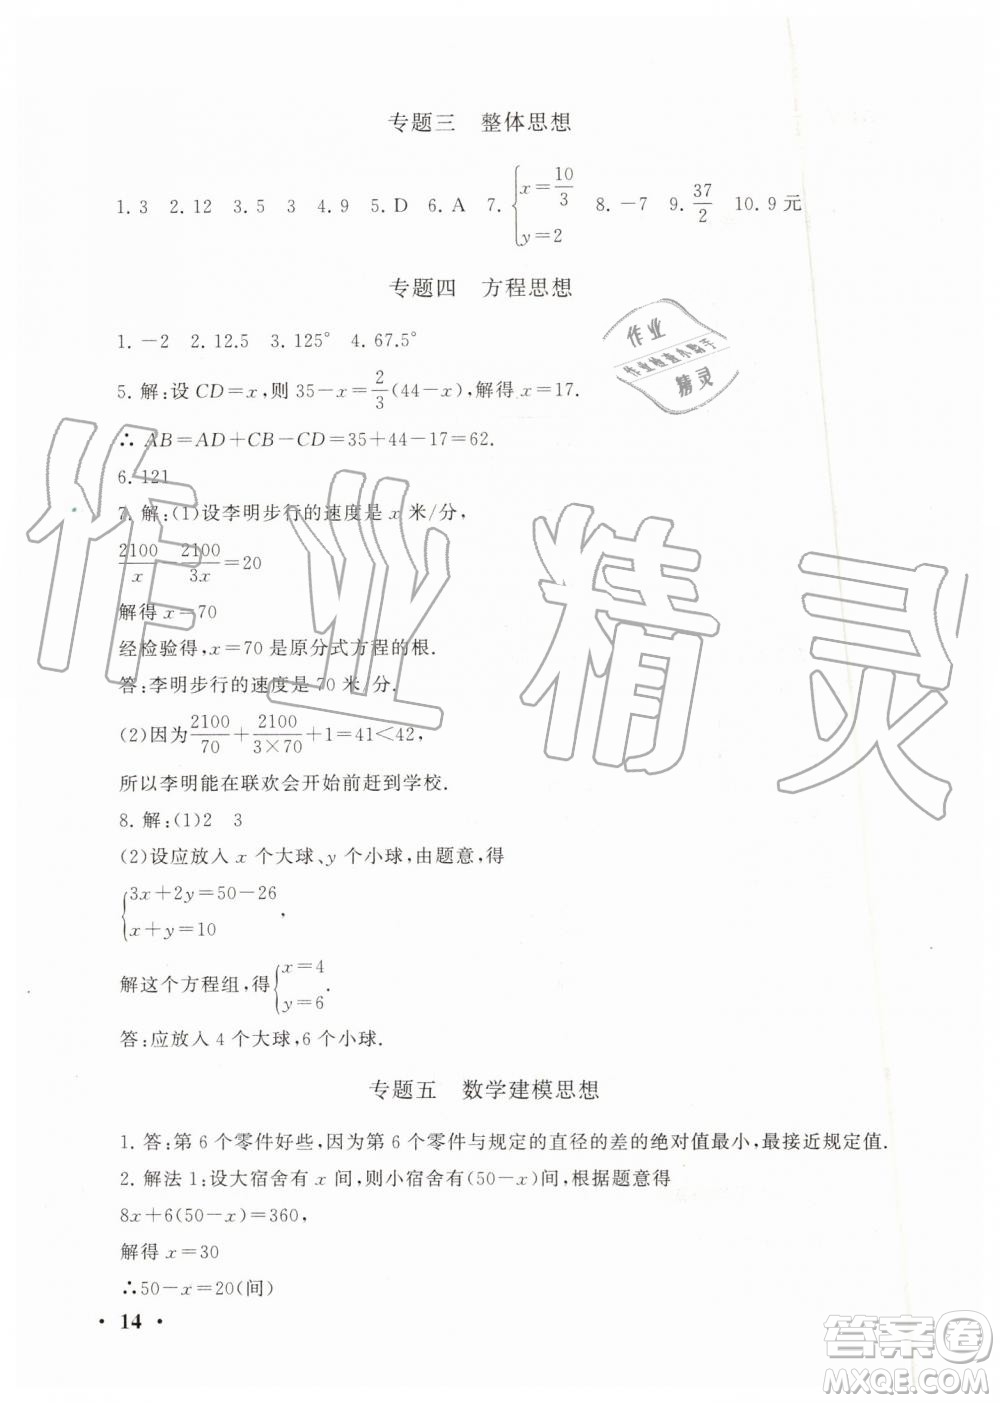 专题三　整体思想
1.3　2.12　3.5　3　4.9　5.D　6.A　7.{x=10/3, y=2　8.-7　9.37/2　10.9元
专题四　方程思想
1.-2　2.12.5　3.125°　4.67.5°
5.解:设CD=x,则35-x=2/3(44-x),解得x=17.
∴AB=AD+CB-CD=35+44-17=62.
6.121
7.解:(1)设李明步行的速度是x米/分,
2100/x　2100/3x=20
解得x=70
经检验得,x=70是原分式方程的根.
答:李明步行的速度是70米 分.
(2)因为2100/70+2100/3×70+1=41<42,
所以李明能在联欢会开始前赶到学校.
8.解:(1)2　3
(2)设应放入x个大球、y个小球,由题意,得
{3x+2y=50-26
x+y=10,
解这个方程组,得{x=4
y=6.
答:应放入4个大球,6个小球.
专题五　数学建模思想
1.答:第6个零件好些,因为第6个零件与规定的直径的差的绝对值最小,最接近规定值.
2.解法1:设大宿舍有x间,则小宿舍有(50-x)间,根据题意得
8x+6(50-x)=360,
解得x=30
∴50-x=20(间)
· 14 ·
作业
作业检查小助手
精灵
作业精灵
答案卷
MXQE.COM